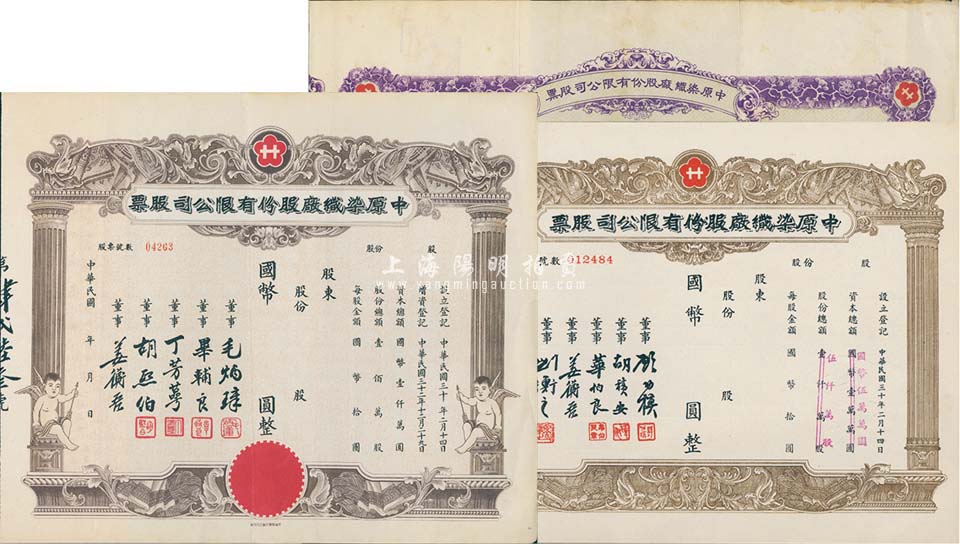 中原染織廠股份有限公司股票
中原染織廠股份有限公司股票
股票號數 04263
股份 股
設立登記 中華民國三十年二月十四日
增資登記 中華民國三十二年十二月二十九日
資本總額國幣壹仟萬圓
股份總額壹佰萬股
每股金額國幣拾圓
股東
股份 股
國幣 圓整
董事 毛炳璋
董事 畢輔良
董事 丁芳蕚
董事 胡熙伯
董事 姜衛臣
中華民國 年 月 日
中原染織廠股份有限公司股票
號數 012484
股份 股
設立登記 中華民國三十年二月十四日
資本總額國幣壹萬萬圓
國幣伍萬萬圓
股份總額壹仟萬股
伍仟萬股
每股金額國幣拾圓
股東
股份 股
國幣 圓整
董事
董事 胡積安
董事 華伯良
董事 姜衛臣
董事
上海陽明拍賣
www.yangmingauction.com